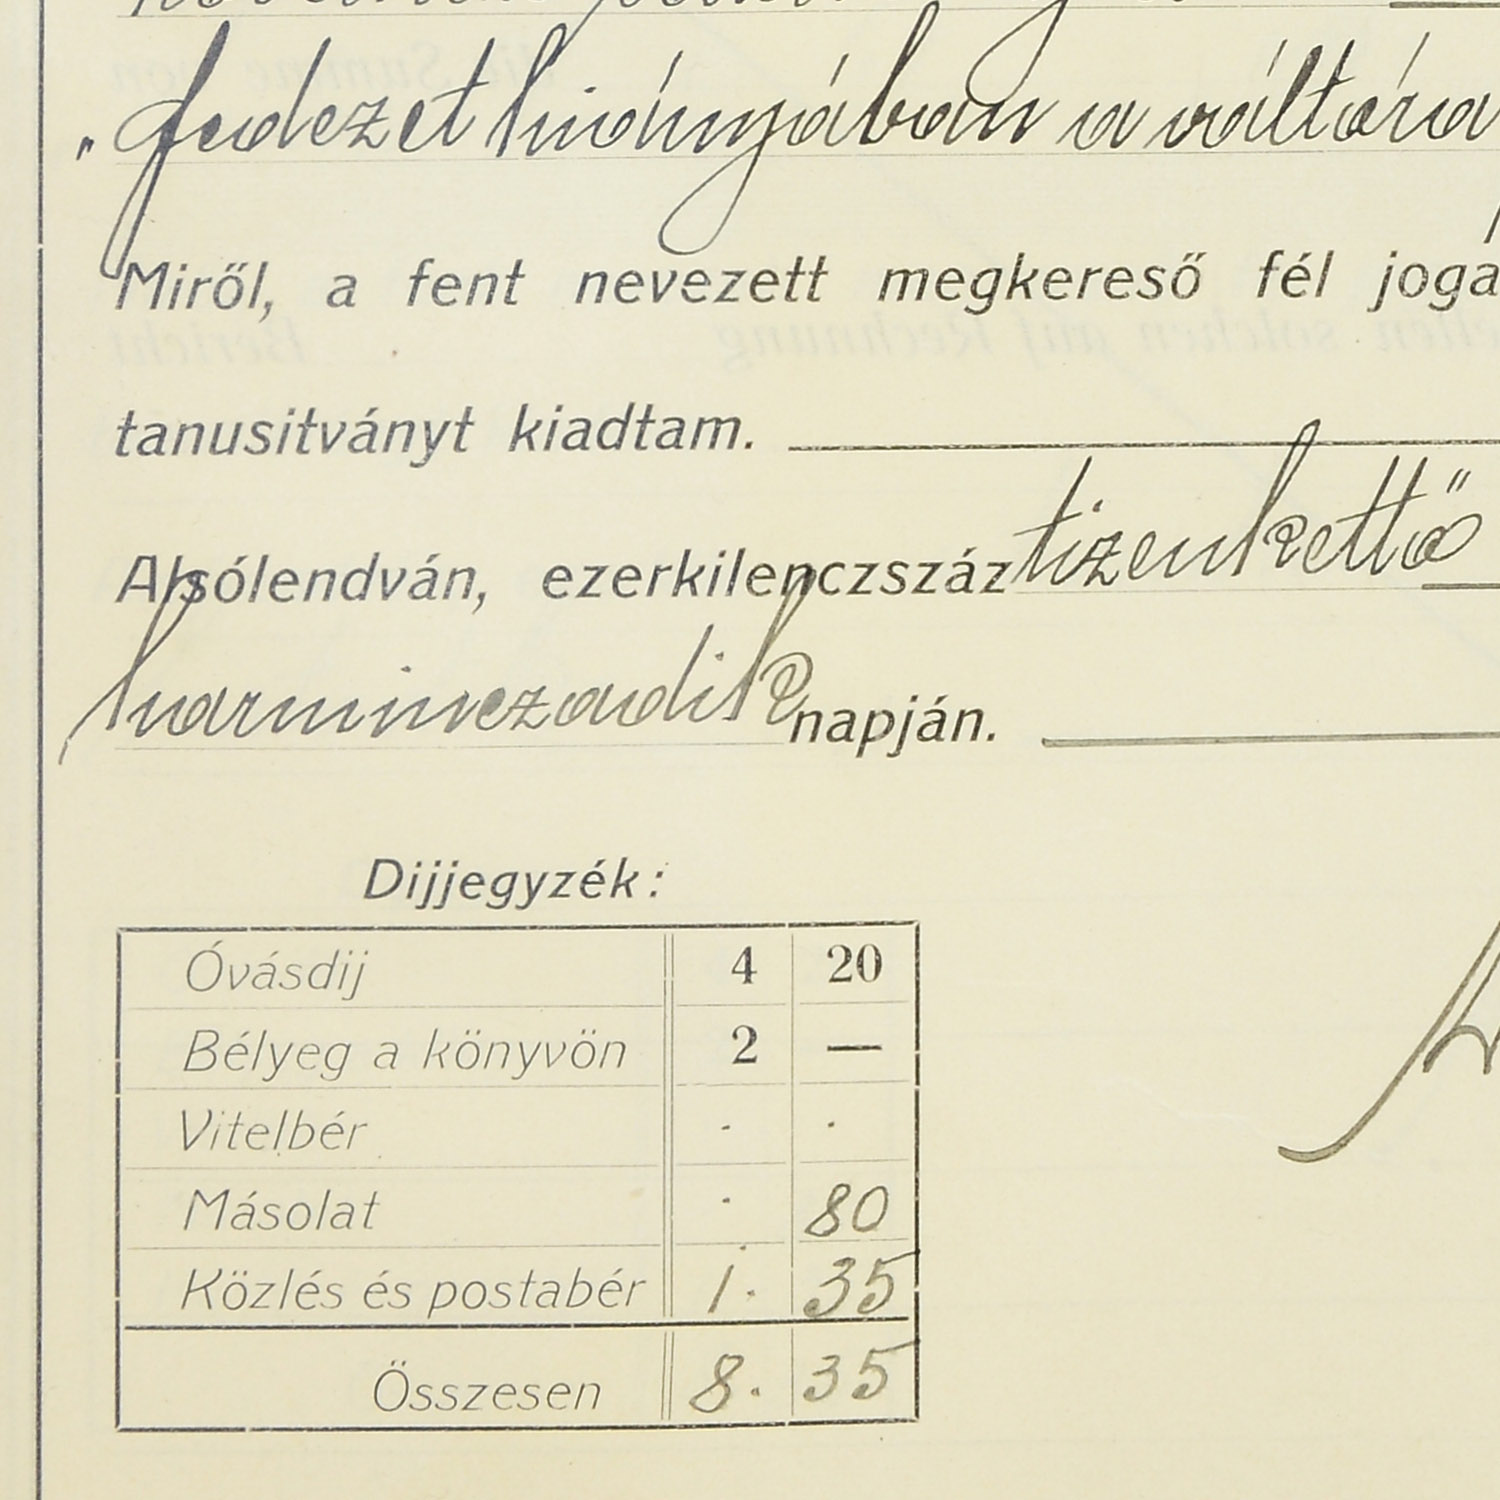 „fedezet hiányában a váltóra
Miről, a fent nevezett megkereső fél joga
tanusitványt kiadtam.
Alsólendván, ezerkilenczszáz tizenkettő
harminczadik napján.
Dijjegyzék:
Óvásdij 4 20
Bélyeg a könyvön 2 —
Vitelbér · ·
Másolat · 80
Közlés és postabér 1. 35
Összesen 8. 35